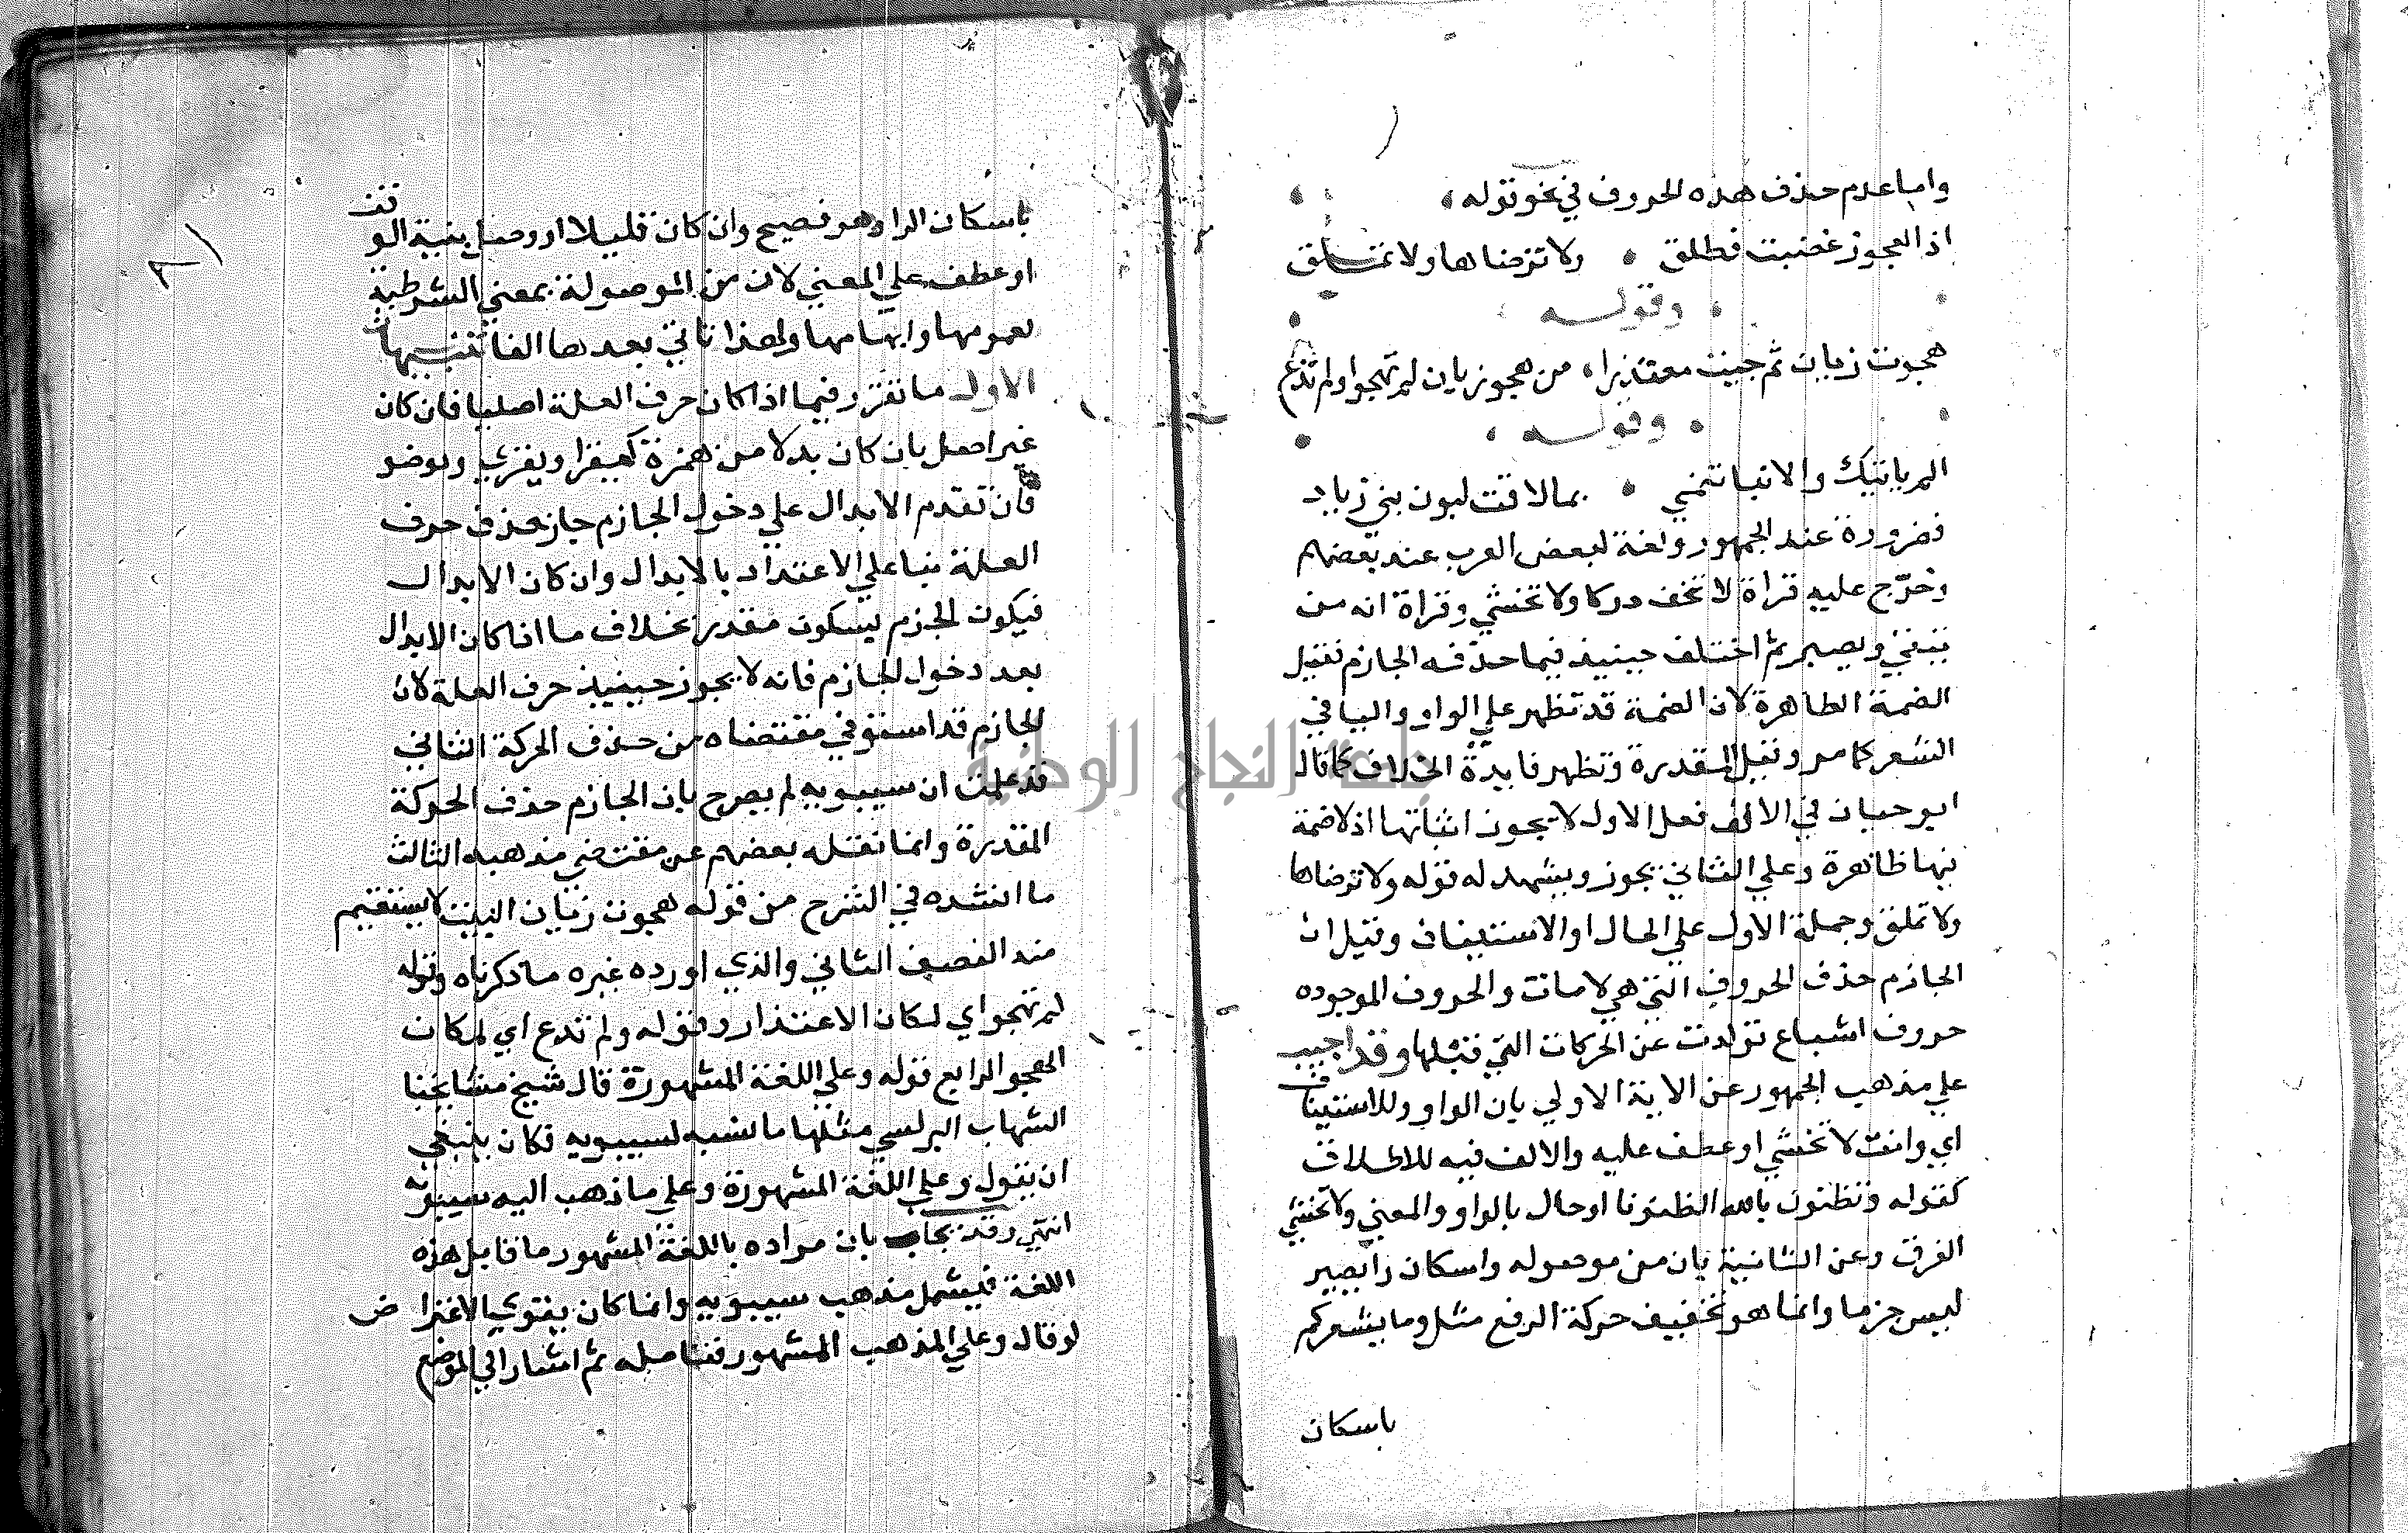 واما عدم حذف هذه الحروف في نحو قوله
اذا العجوز غضبت فطلق ولا ترضاها ولا تملق
وقوله
هجوت زبان ثم جيت معتذرا من هجو زبان لم تهجوا ولم تدع
وقوله
الم ياتيك والانبا تنمي بما لاقت لبون بني زياد
فضرورة عند الجمهور ولغة لبعض العرب عند بعضهم
وخرّج عليه قراة لا تخف دركا ولا تخشي وقراة انه من
يتقي ويصبر ثم اختلف حينيذ فيما حذفه الجازم فقيل
الضمة الظاهرة لان الضمة قد تظهر علي الواو واليا في
الشعر كما مر وقيل المقدرة وتظهر فايدة الخلاف كما قال
ابو حيان في الالف فعل الاول لا يجوز اثباتها اذ لا ضمة
فيها ظاهرة وعلي الثاني يجوز ويشهد له قوله ولا ترضاها
ولا تملق وجملة الاول علي الحال او الاستيناف وقيل ان
الجازم حذف الحروف التي هي لامات والحروف الموجوده
حروف اشباع تولدت عن الحركات التي قبلها وقد اجيب
علي مذهب الجمهور عن الاية الاولي بان الواو للاستيناف
اي وانت لا تخشي او عطف عليه والالف فيه للاطلاق
كقوله وتظنون بالله الظنونا او حال بالواو والمعني ولا تخشي
الغرق وعن الثانية بان من موصوله واسكان را يصبر
ليس جزما وانما هو تخفيف حركة الرفع مثل وما يشعركم
باسكان
باسكان الرا وهو فصيح وان كان قليلا او وصل بنية الوقف
او عطف علي المعني لان من الموصولة بمعني الشرطية
لعمومها وابهامها ولهذا تاتي بعدها الفا تنبيهات
الاول ما تقرر فيما اذا كان حرف العلة اصليا فان كان
غير اصل بان كان بدلا من همزة كيقرا ويقري ويوضو
فان تقدم الابدال علي دخول الجازم جاز حذف حرف
العلة بنا علي الاعتداد بالابدال وان كان الابدال
فيكون الجزم بسكون مقدر بخلاف ما اذا كان الابدال
بعد دخول الجازم فانه لا يجوز حينيذ حرف العلة لان
الجازم قد استوفي مقتضاه من حذف الحركة الثاني
قد علمت ان سيبويه لم يصرح بان الجازم حذف الحركة
المقدرة وانما نقله بعضهم عن مقتضي مذهبه الثالث
ما انشده في الشرح من قوله هجوت زبان البيت لا يستقيم
منه النصف الثاني والذي اورده غيره ما ذكرناه وقوله
لم تهجو اي لمكان الاعتذار وقوله ولم تدع اي لمكان
الهجو الرابع قوله وعلي اللغة المشهورة قال شيخ مشايخنا
الشهاب البرلسي مثلها ما نسبه لسيبويه فكان ينبغي
ان يقول وعلي اللغة المشهورة وعلي ما ذهب اليه سيبويه
انتهي وقد يجاب بان مراده باللغة المشهور ما قابل هذه
اللغة فيشمل مذهب سيبويه وانما كان يقوي الاعتراض
لو قال وعلي المذهب المشهور فتامله ثم اشار الي الموضع